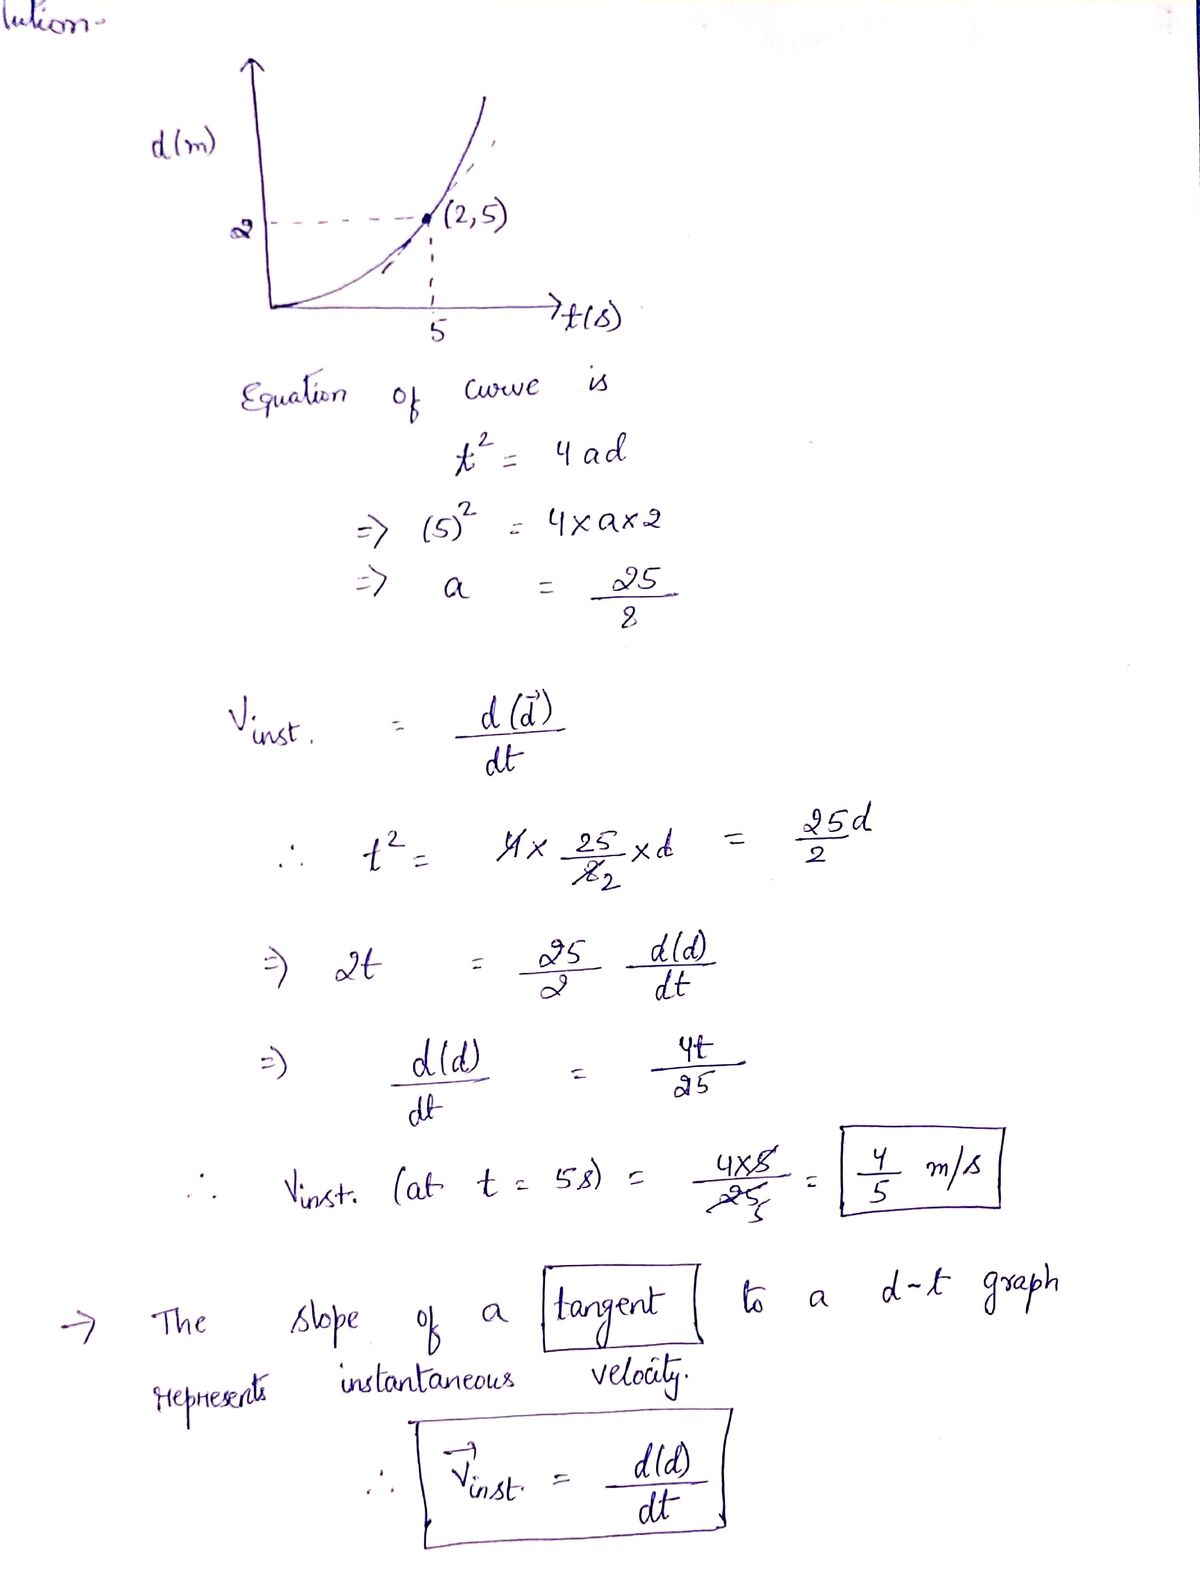 lution-
d(m)
2
(2,5)
5
t(s)
Equation of curve is
t² = 4ad
=> (5)² = 4×a×2
=> a = 25/8
Vinst. = d(d⃗)/dt
∴ t² = 4× 25/82 ×d = 25d/2
=> 2t = 25/2 d(d)/dt
=> d(d)/dt = 4t/25
∴ Vinst. (at t = 5s) = 4×5/255 = 4/5 m/s
→ The slope of a tangent to a d-t graph
represents instantaneous velocity.
∴ V⃗inst. = d(d)/dt